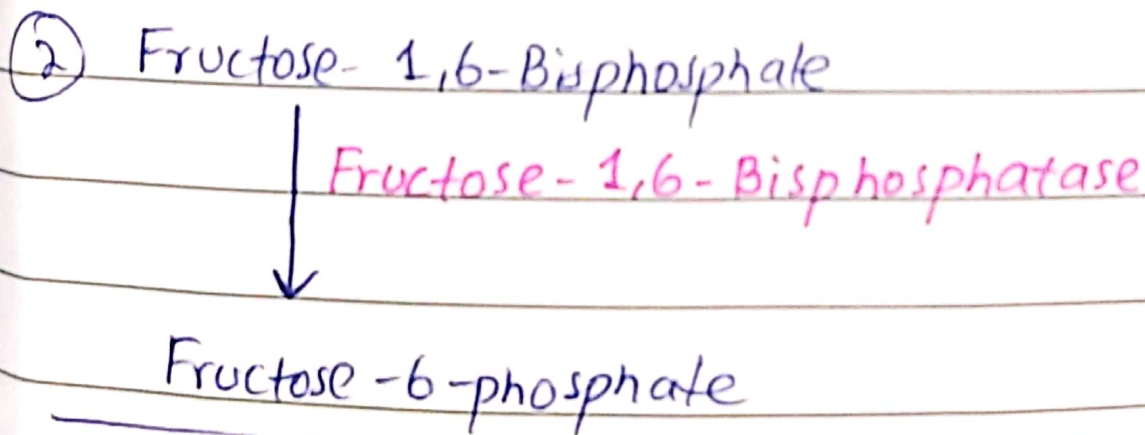 2 Fructose- 1,6-Bisphosphate
Fructose-1,6-Bisphosphatase
Fructose-6-phosphate